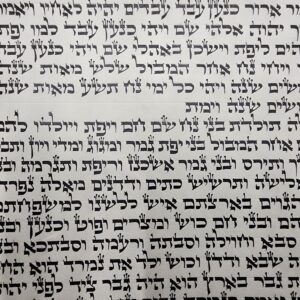 ארור כנען עבד עבדים יהיה לאחיו ויאמר
יהוה אלהי שם ויהי כנען עבד למו יפת
ליפת וישכן באהלי שם ויהי כנען עבד
ויחי נח אחר המבול שלש מאות
שנה ויהי כל ימי נח תשע מאות שנה
שנה וימת
תולדת בני נח שם חם ויפת ויולדו להם
אחר המבול בני יפת גמר ומגוג ומדי ויון
ותירס ובני גמר אשכנז וריפת ותגרמה
אלישה ותרשיש כתים ודדנים מאלה נפרדו
הגוים בארצתם איש ללשנו למשפחתם
ובני חם כוש ומצרים ופוט וכנען
סבא וחוילה וסבתה ורעמה וסבתכא
שבא ודדן וכוש ילד את נמרד הוא החל
גבר בארץ הוא היה גבר ציד לפני